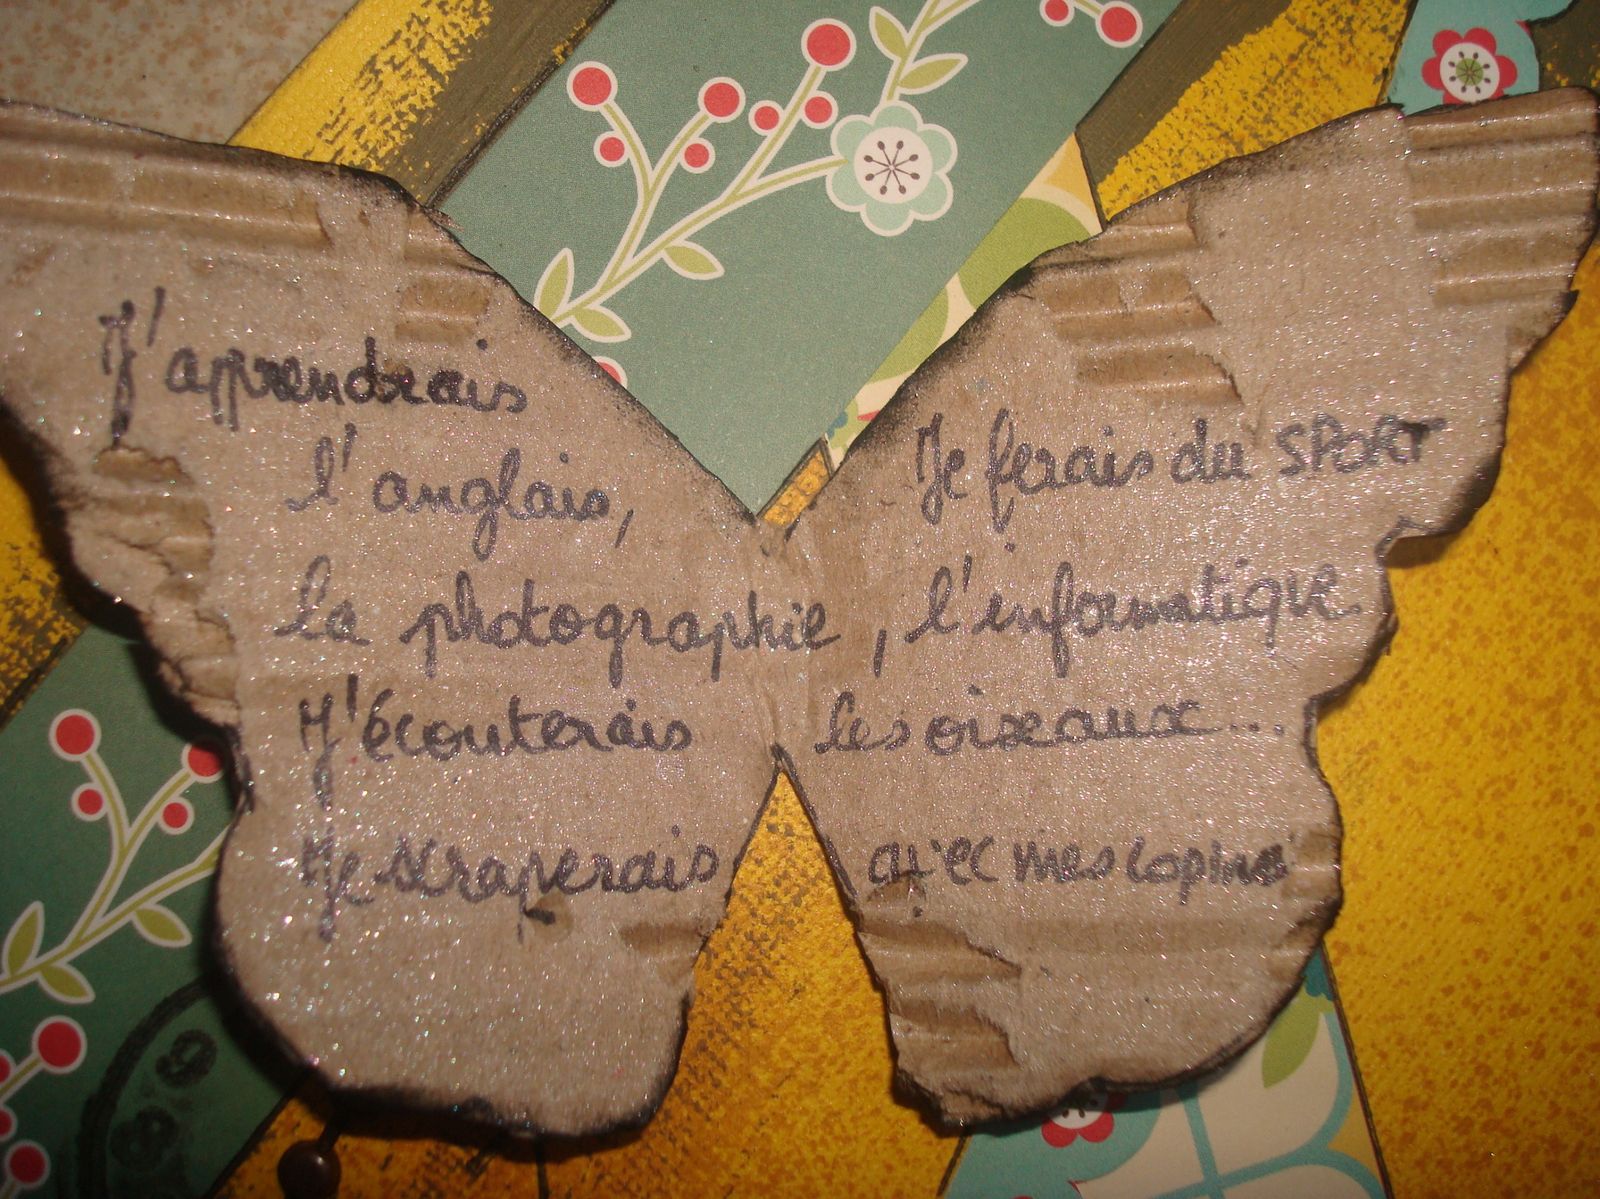 J'apprendrais
l'anglais,
Je ferais du SPORT
la photographie, l'informatique
J'écouterais les oiseaux...
Je scraperais avec mes copines